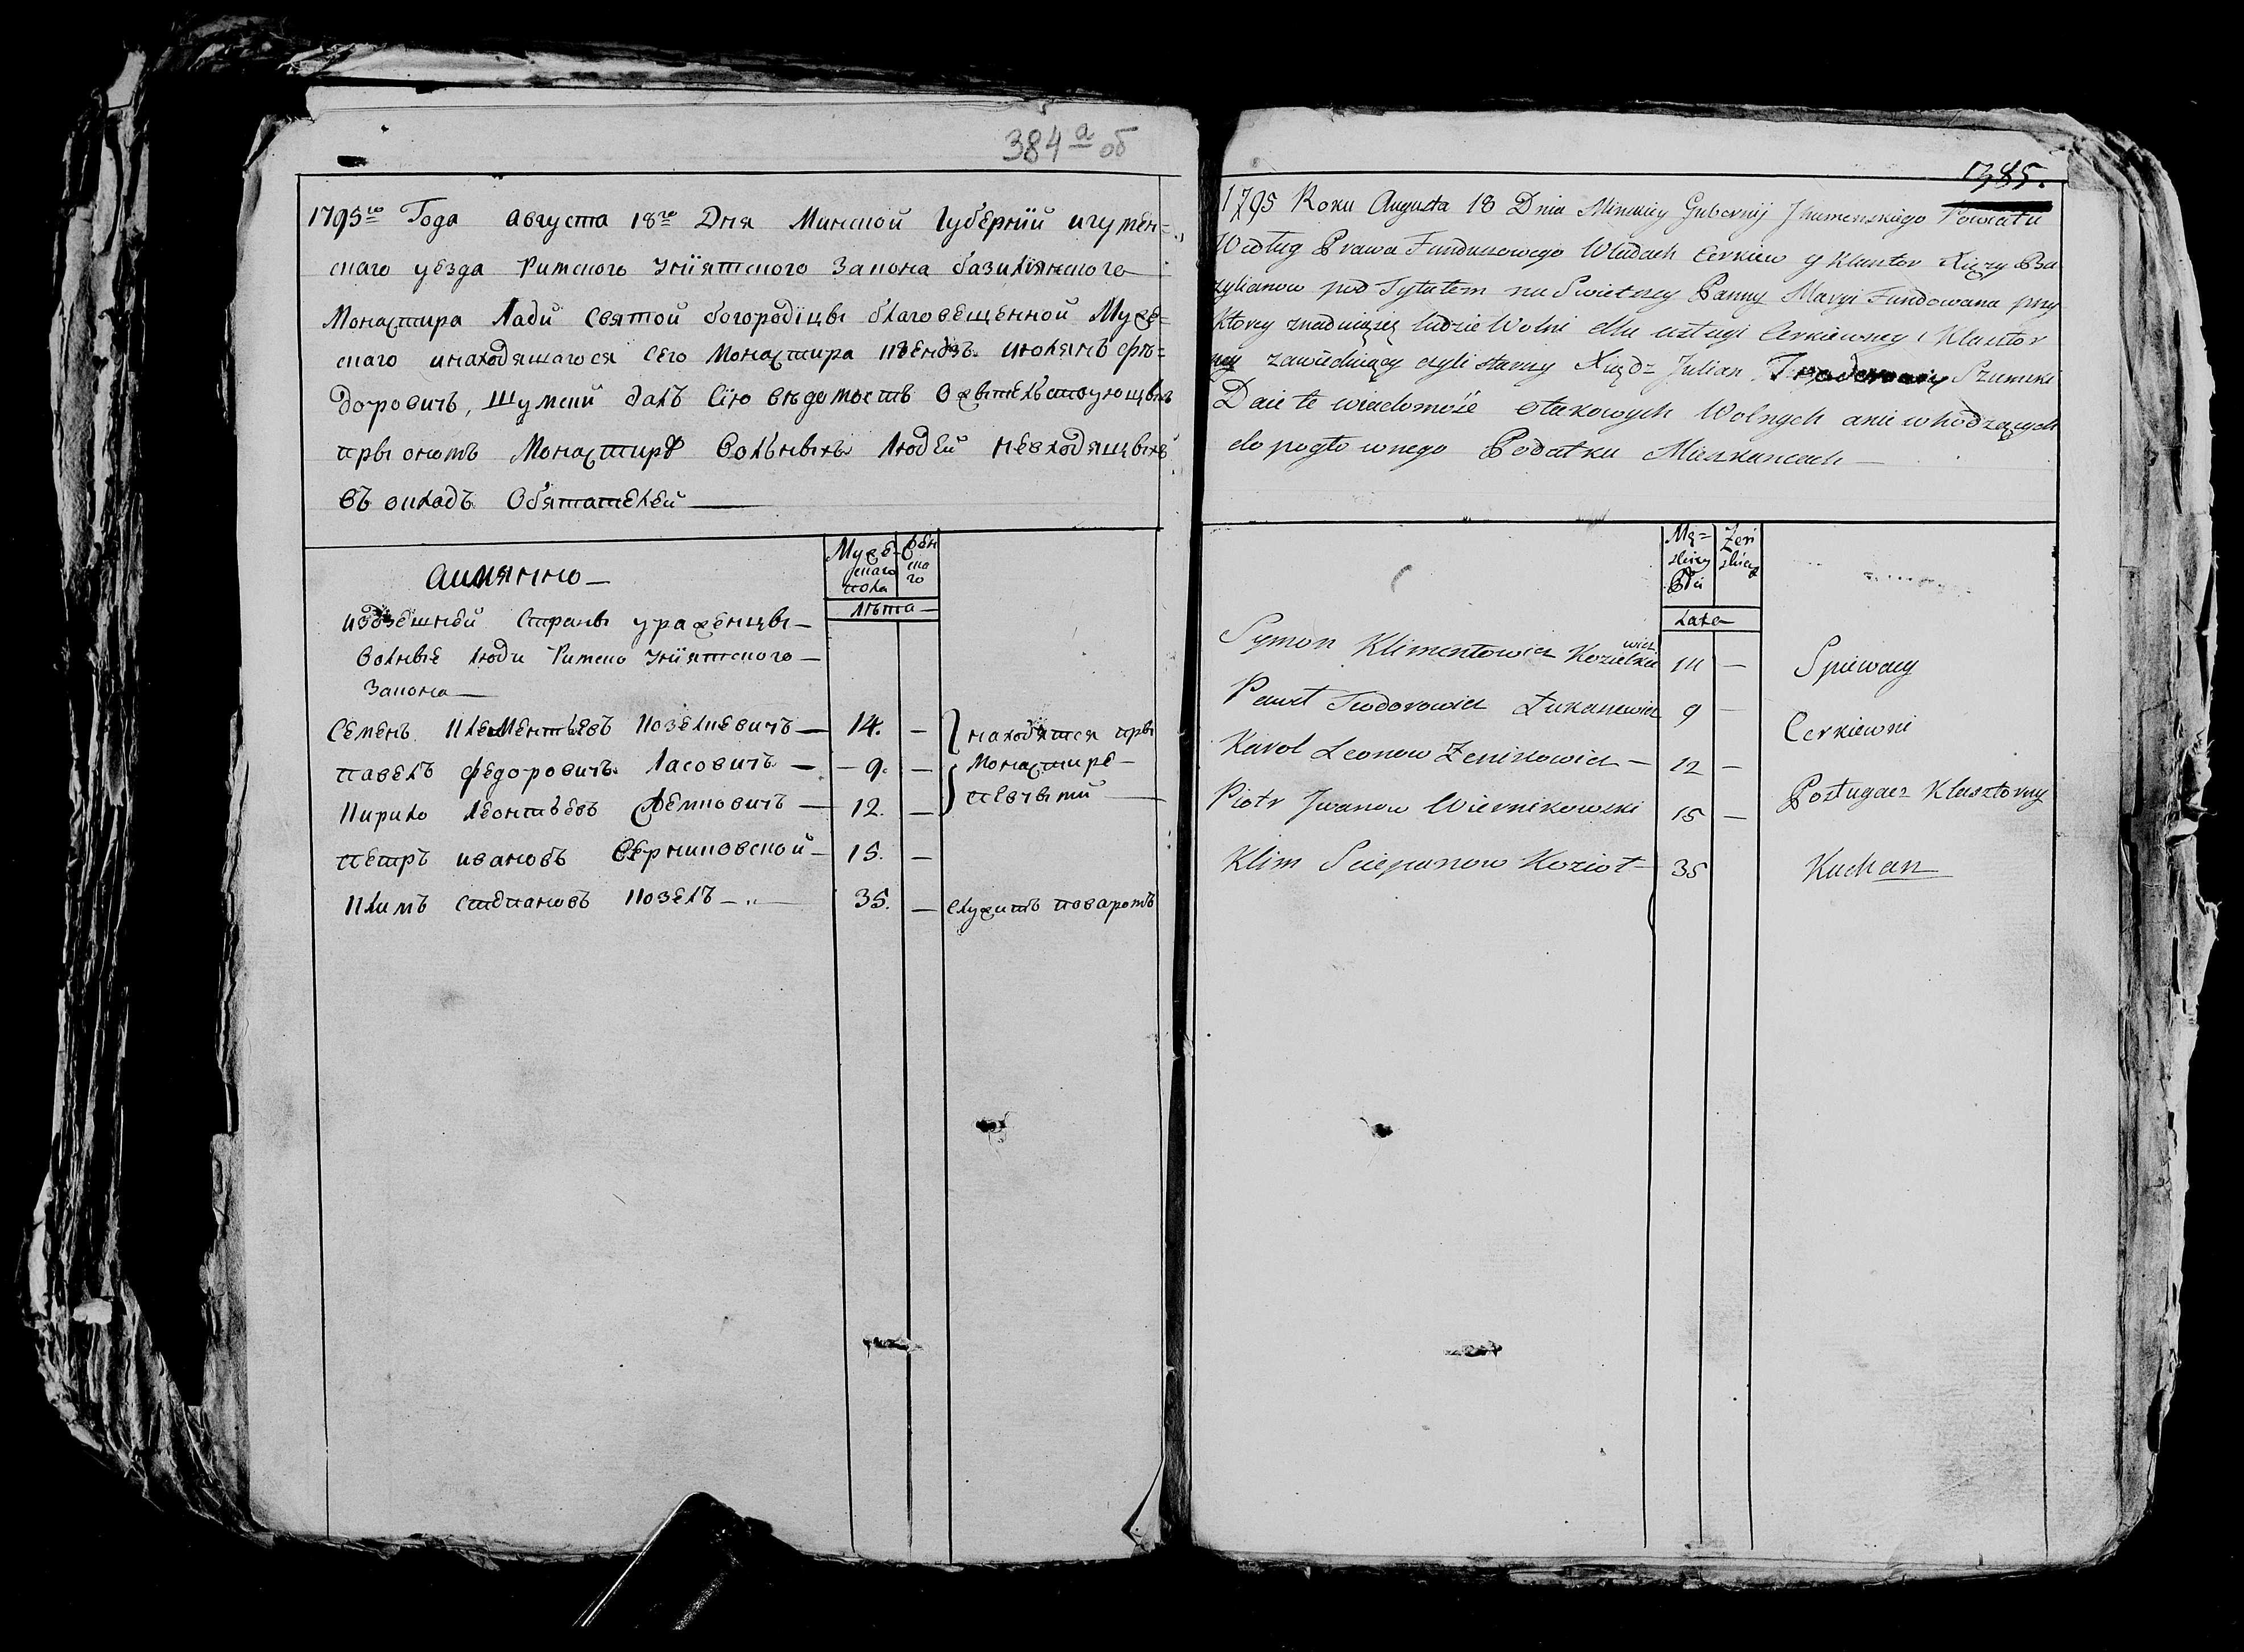 384 а об
1795го Года августа 18го Дня Минской Губернïи игумен=
скаго уезда Римского Унïятского Закона базилïянского
Монастира Лади Святой богородïцы благовещенной Муже=
скаго инаходящагося сего Монастира ксендзъ июлянъ фѣ=
доровичъ, Шумский далъ Сïю вѣдомость
пры ономъ Монастирѣ Вольныхъ Людей невходящыхъ
въ окладъ Обятателей
Аимянно
Муже-
скаго
пола
жен
ска
го
Лѣта
издѣшней Страны уроженцы
Волные люди Римско Унïятского
Закона
Семенъ Клементьевъ Козелкевичъ 14. —
находятся пры
павелъ федоровичъ Ласовичъ 9. —
Монастире
Кирило Леонтьевъ 12. —
певчыми
петръ ивановъ Верниковской 15. —
Климъ стипановъ Козелъ 35. — служитъ поваромъ
385.
1795 Roku Augusta 18 Dnia Minskiey Gubernij Jhumenskiego Powiatu
Według Prawa Funduszowego Wladach Cerkiew y Klasztor Xięży Ba
zylianow pod Tytułem na Swietszey Panny Maryi Fundowana przy
ktorey znaduiąsię ludzie Wolni dla usługi Cerkiewney i Klasztor
ney zawieduiący czyli starszy Xiądz Julian Szumski
Daie te wiadomość otakowych Wolnych anie whodzących
do pogłownego Podatku Mieszkancach
Mę=
skiey
Płci
Żeń
skiey
Lata
Symon Klimentowicz Kozielkie
wicz
14 — Spiewacy
Paweł Teodorowicz Łukaszewicz 9 —
Cerkiewni
Karol Leonow Zenikowicz 12 —
Piotr Jwanow Wiernikowski 15 —
Posługacz Klasztorny
Klim Sciepanow Kozioł 35 Kucharz